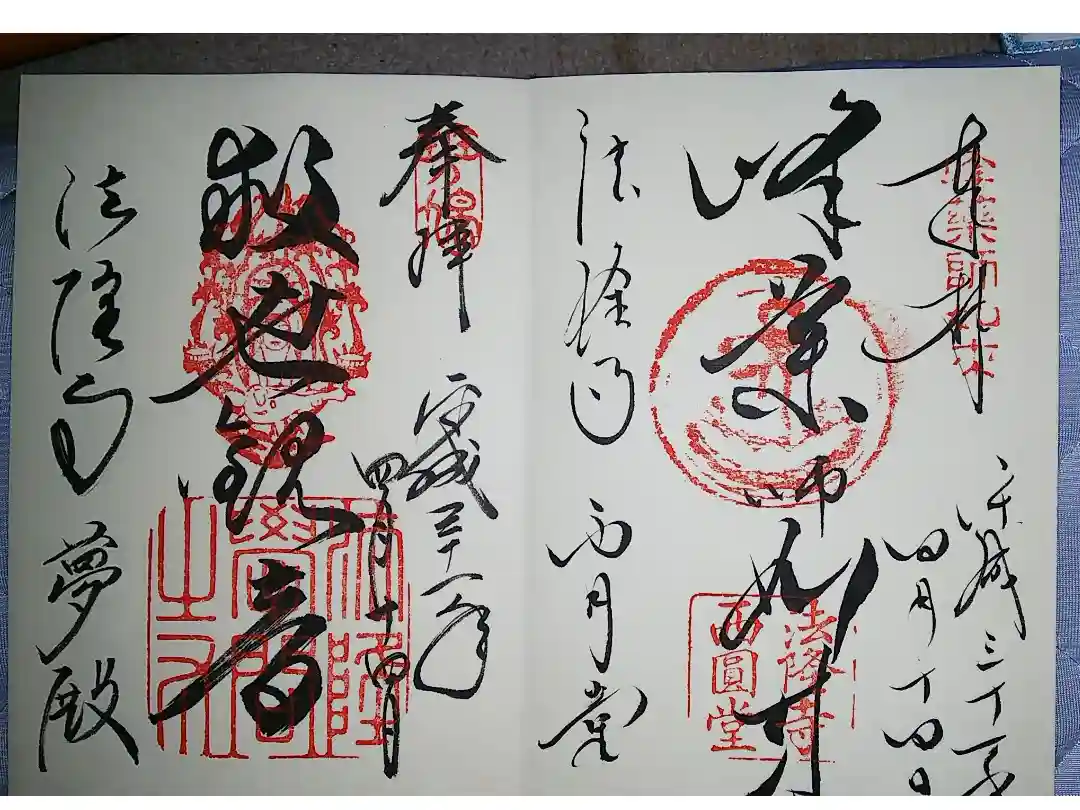 奉拝
平成三十一年
四月十四日
峰薬師如来
法隆寺
西圓堂
法隆寺 西円堂
奉拝
平成三十一年
四月十四日
救世観音
法隆寺 夢殿